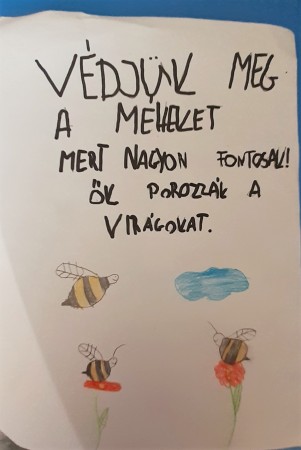 VÉDJÜNK MEG
A MÉHEKET
MERT NAGYON FONTOSAK!
ŐK POROZZÁK A
VIRÁGOKAT.